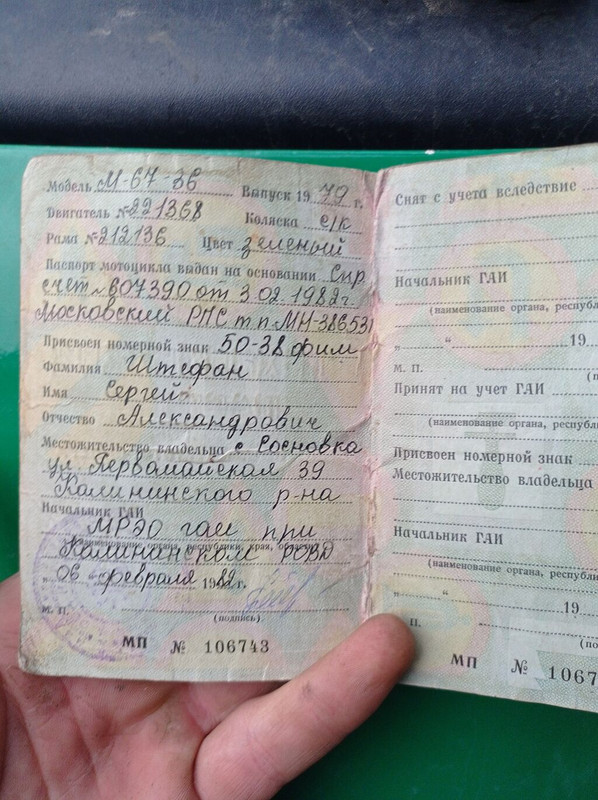 Модель М-67-36 Выпуск 1979 г.
Двигатель №221368 Коляска с/к
Рама №212136 Цвет зеленый
Паспорт мотоцикла выдан на основании Спр
счет № 607390 от 3.02.1982г.
Московский РПС т.п. МН-386531
Присвоен номерной знак 50-38 фим
Фамилия Штефан
Имя Сергей
Отчество Александрович
Местожительство владельца с Сосновка
ул. Первамайская 39
Калининского р-на
Начальник ГАИ
МРЭО гаи при
Калининском РОВД
„06 февраля 1982 г.
М. П. (подпись)
МП № 106743
Снят с учета вследствие
Начальник ГАИ
(наименование органа, республ
„ “ 19
М. П.
Принят на учет ГАИ
(наименование органа, республи
Присвоен номерной знак
Местожительство владельца
Начальник ГАИ
(наименование органа, республи
„ “ 19
П. (по
МП № 1067